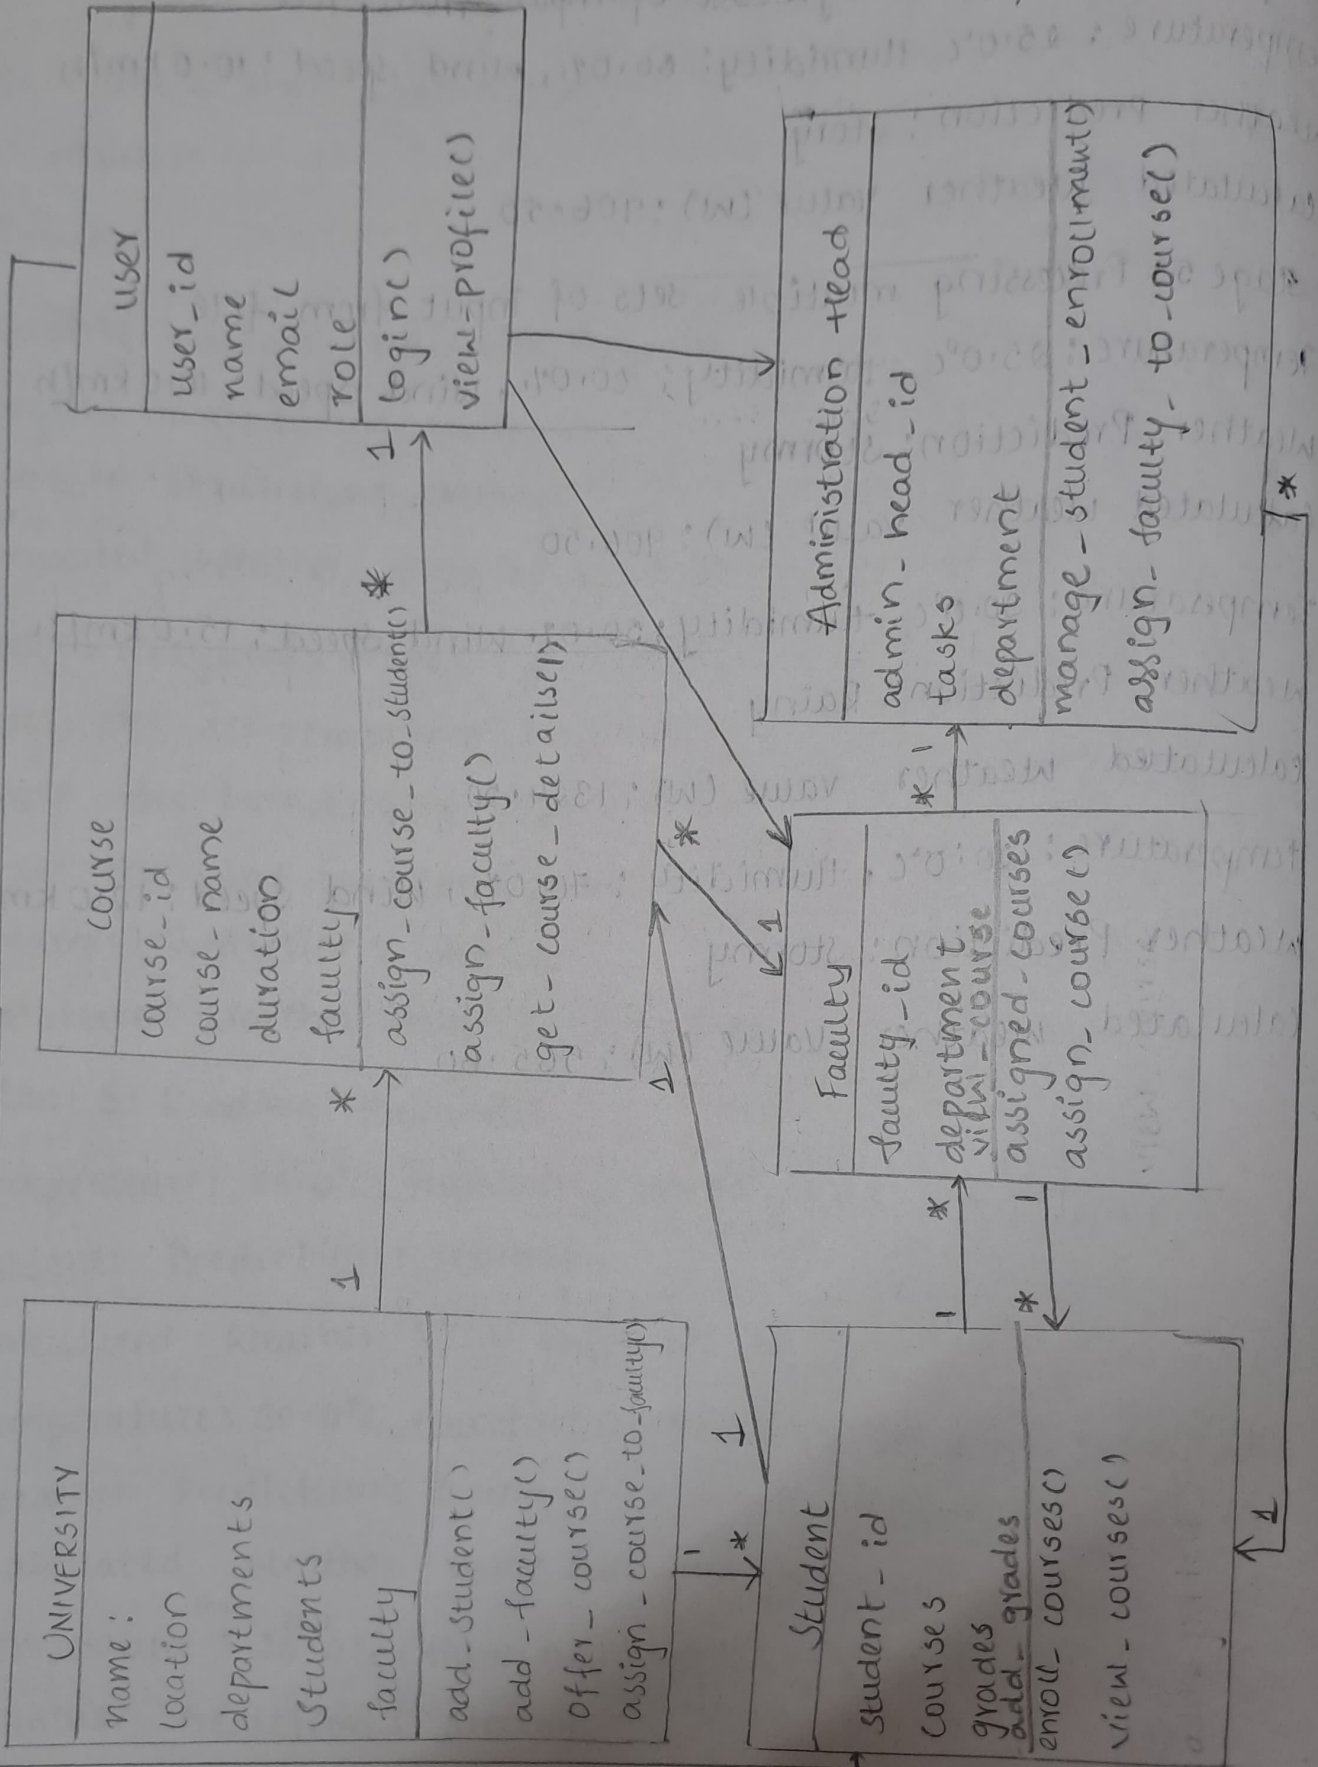 UNIVERSITY
name :
location
departments
Students
faculty
add_student()
add_faculty()
Offer_course()
assign_course_to_faculty()
1
*
1
*
course
course_id
course_name
duration
faculty
assign_course_to_student()
assign_faculty()
get_course_details()
*
1
user
user_id
name
email
role
login()
view_profile()
Student
student_id
courses
grades
add_grades
enroll_courses()
view_courses()
1
1
1
*
1
*
*
1
Faculty
faculty_id
department
view_course
assigned_courses
assign_course()
*
1
Administration Head
admin_head_id
tasks
department
manage_student_enrollment()
assign_faculty_to_course()
*
1